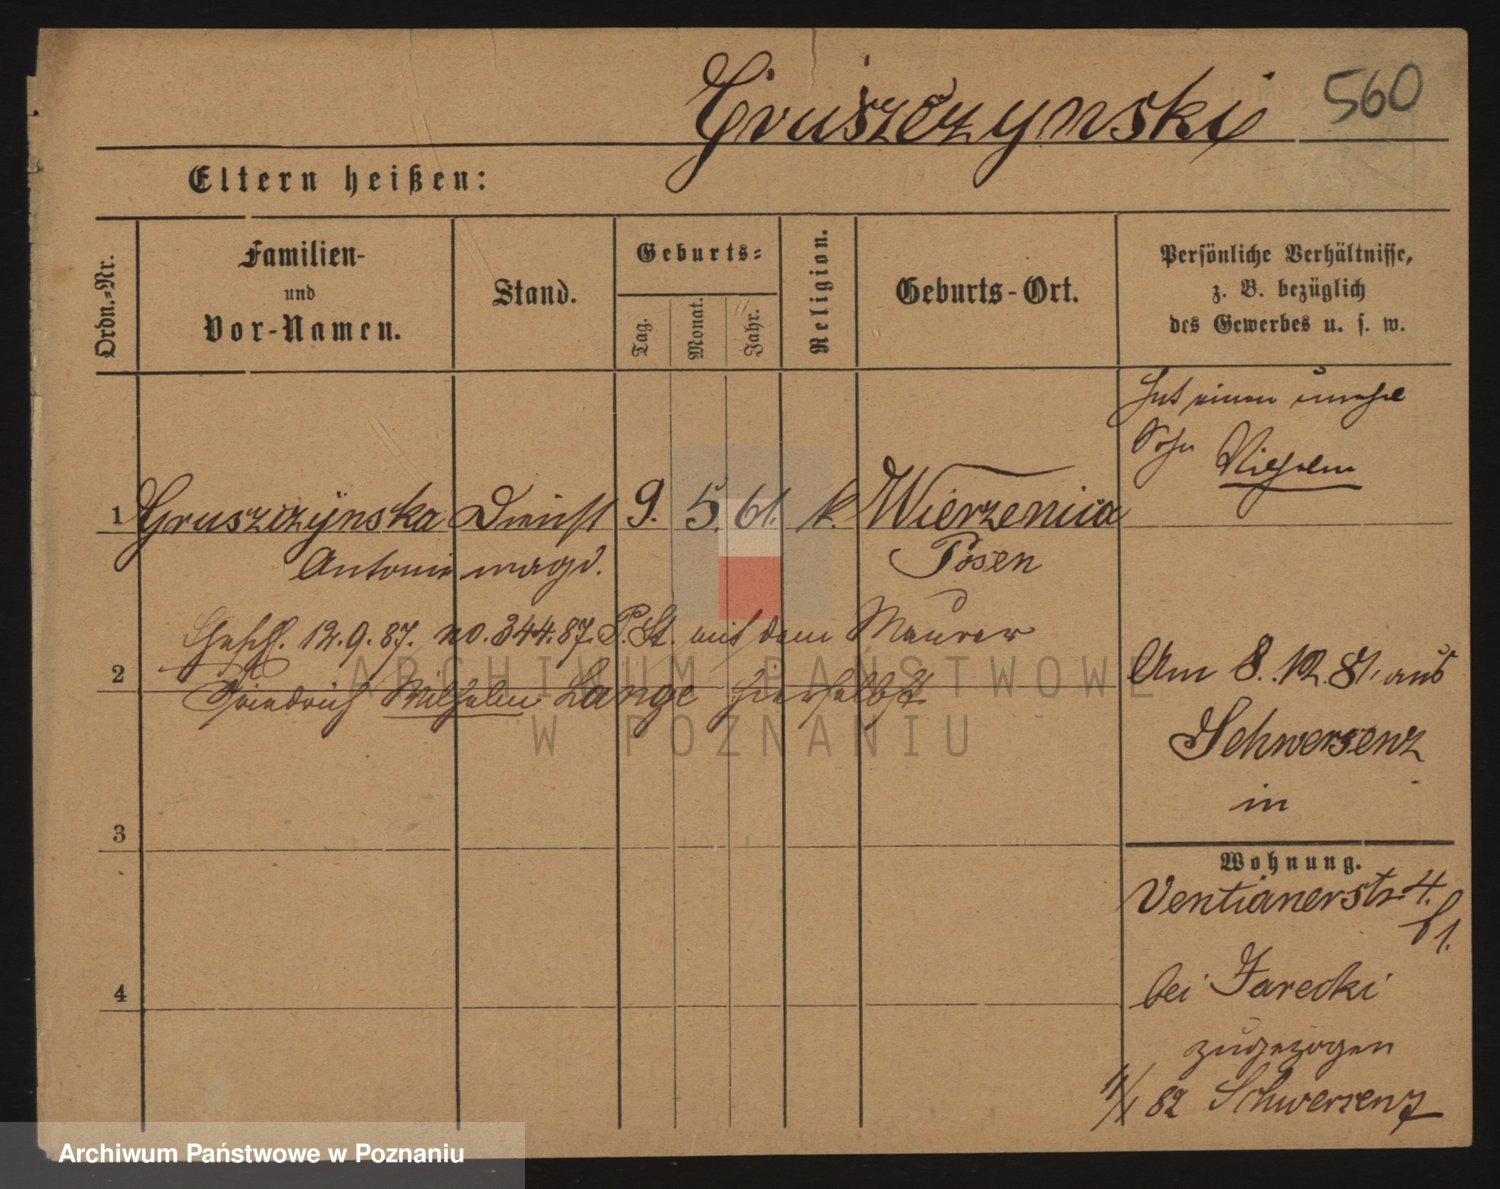 Gruszczynski 560
Eltern heißen:
Ordn.-Nr.
Familien-
und
Vor-Namen.
Stand.
Geburts-
Tag.
Monat.
Jahr.
Religion.
Geburts-Ort.
Persönliche Verhältnisse,
z. B. bezüglich
des Gewerbes u. s. w.
hat einen unehel
Sohn Wilhelm
1 Gruszczynska Dienst 9. 5. 61. k. Wierzenica
Antonie magd. Posen
Gesch. 12.9.87. no. 344.87. P. St. mit dem Maurer
2
Friedrich Wilhelm Lange hierselbst
Am 8. 12. 81. aus
Schwersenz
in
3
Wohnung.
Ventianerstr 4.
bei Jarecki
4
zugezogen
82 Schwersenz
ARCHIWUM PAŃSTWOWE
W POZNANIU
Archiwum Państwowe w Poznaniu